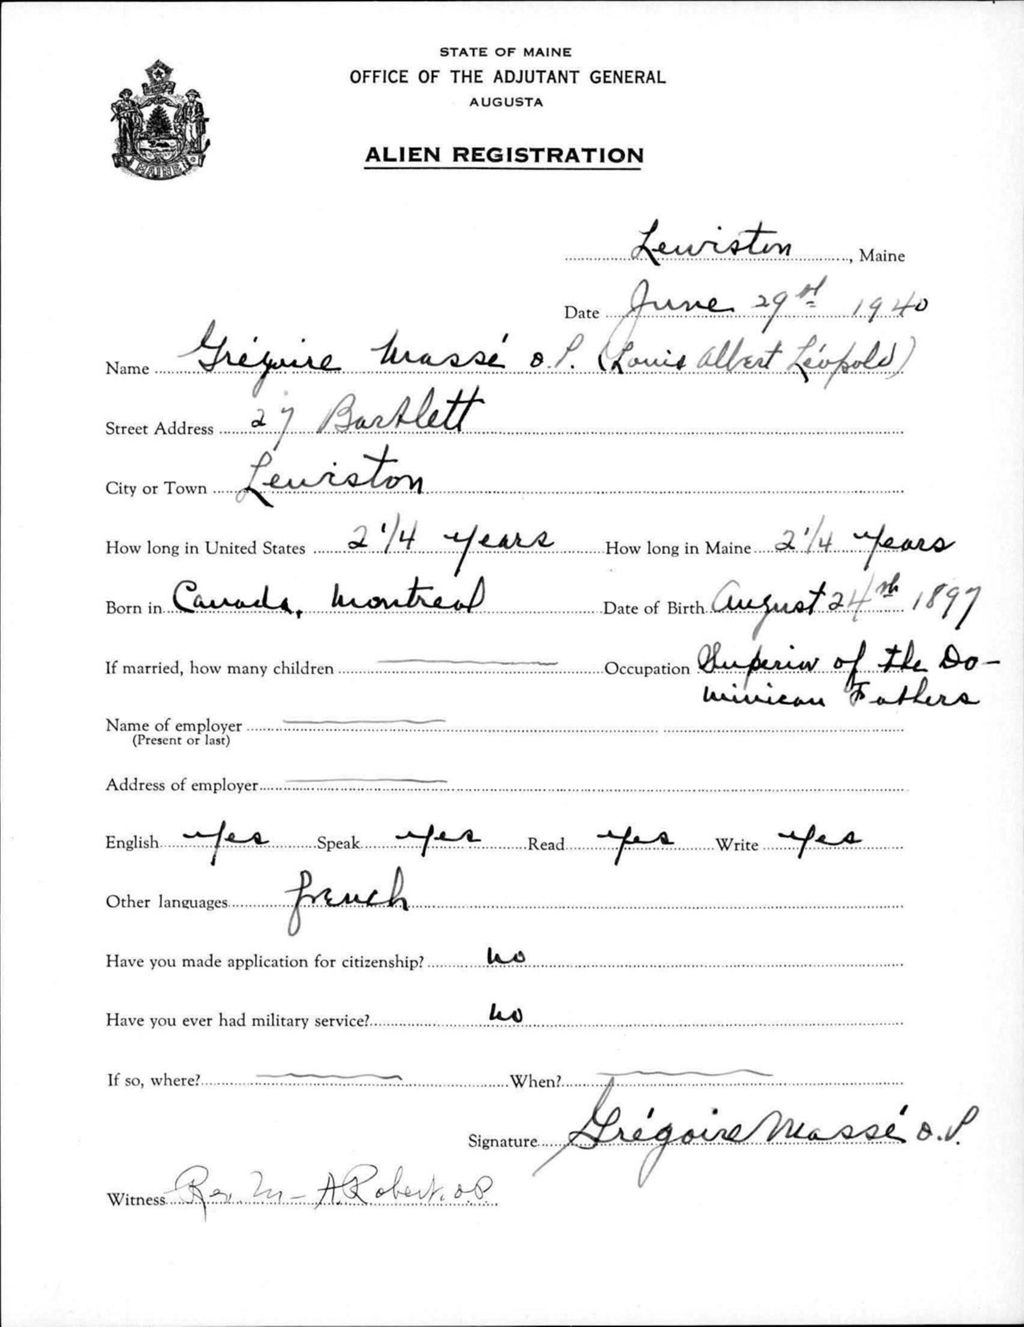 STATE OF MAINE
OFFICE OF THE ADJUTANT GENERAL
AUGUSTA
ALIEN REGISTRATION
MAINE
Lewiston, Maine
Date June 29th 1940
Name Grégoire Massé o.P. (Louis Albert Léopold)
Street Address 27 Bartlett
City or Town Lewiston
How long in United States 2 1/4 years How long in Maine 2 1/4 years
Born in Canada, Montreal Date of Birth August 24th 1897
If married, how many children Occupation Superior of the Do-
minican Fathers
Name of employer
(Present or last)
Address of employer
English yes Speak yes Read yes Write yes
Other languages french
Have you made application for citizenship? no
Have you ever had military service? no
If so, where? When?
Signature Grégoire Massé o.P.
Witness Rev. M-A. Robert, o.P.